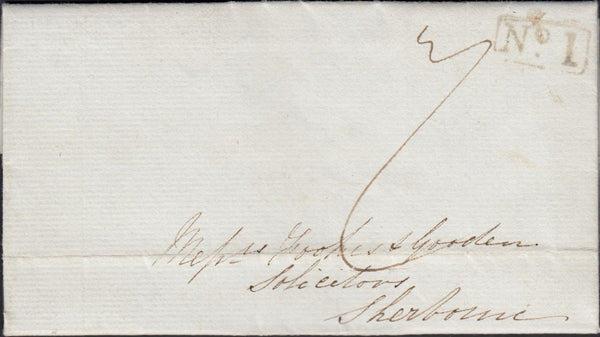 No. 1
7
Messrs Fookes & Gooden
Solicitors
Sherborne